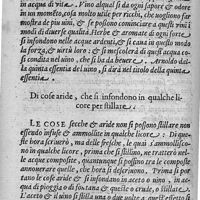 in acqua di vita. Vino alqual si dà sapore & odore
in un mométo, cosa molto utile per ricchi, che vogliono far
mostra di più uini, & si possono cominciare a questi vini i
modi di diuerse qualità. Herbe & aromate di ogni sorte
si infondono nelle acque ardenti, & si caua in questo mo
do la forza, & uirtù loro: & si mescolerà di questa acqua cosi
condita nel uino, sin che si ha da beuere. Arnoldo dal-
la quinta essentia del uino, si dirà nel titolo della quinta
essentia.
Di cose aride, che si infondono in qualche li-
core per stillare.
LE COSE secche & aride non si possono stillare non
essendo infuse & ammollite in qualche licore: Di que
ste hora scriuerò, ma delle fresche, le quai s'ammollisco-
no in qualche licore, prima che si stillino, ne tratterò nel-
le acque composte, quantunque si possono tra le composte
annouerare quelle, che hora si descriueranno. Prima si pon-
no le cose aride & in ogni sorte di acqua, in aceto, in ac-
qua di pioggia o di fontana & quelle o crude, o stillate.
L'aceto & il uino si stilla una o due uolte,